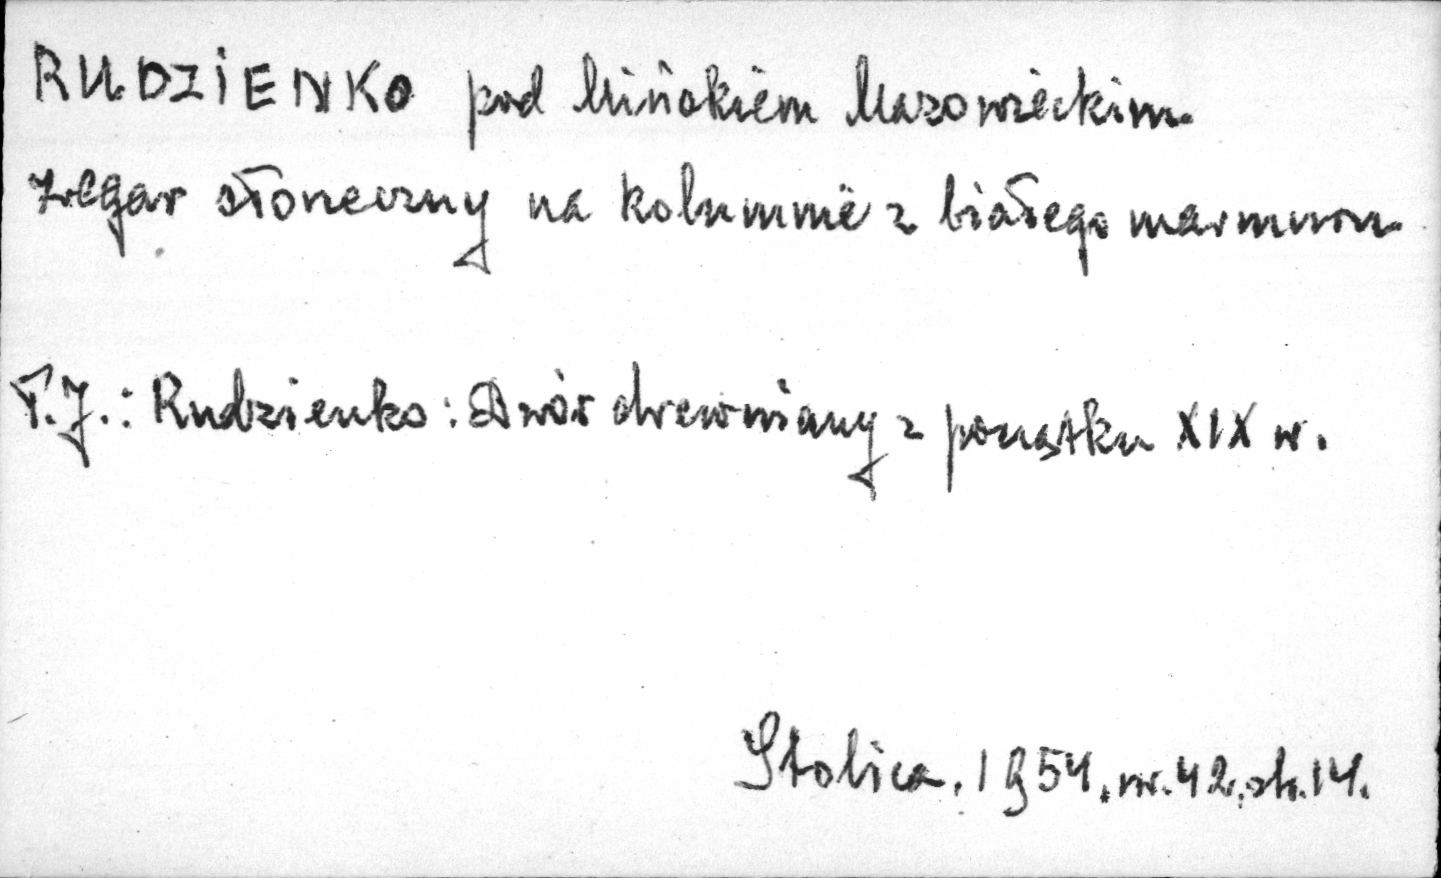 RUDZIENKO pod Mińskiem Mazowieckim.
Zegar słoneczny na kolumnie z białego marmuru.
T.J.: Rudzienko: Dwór drewniany z początku XIX w.
Stolica. 1954. nr. 42. str. 14.